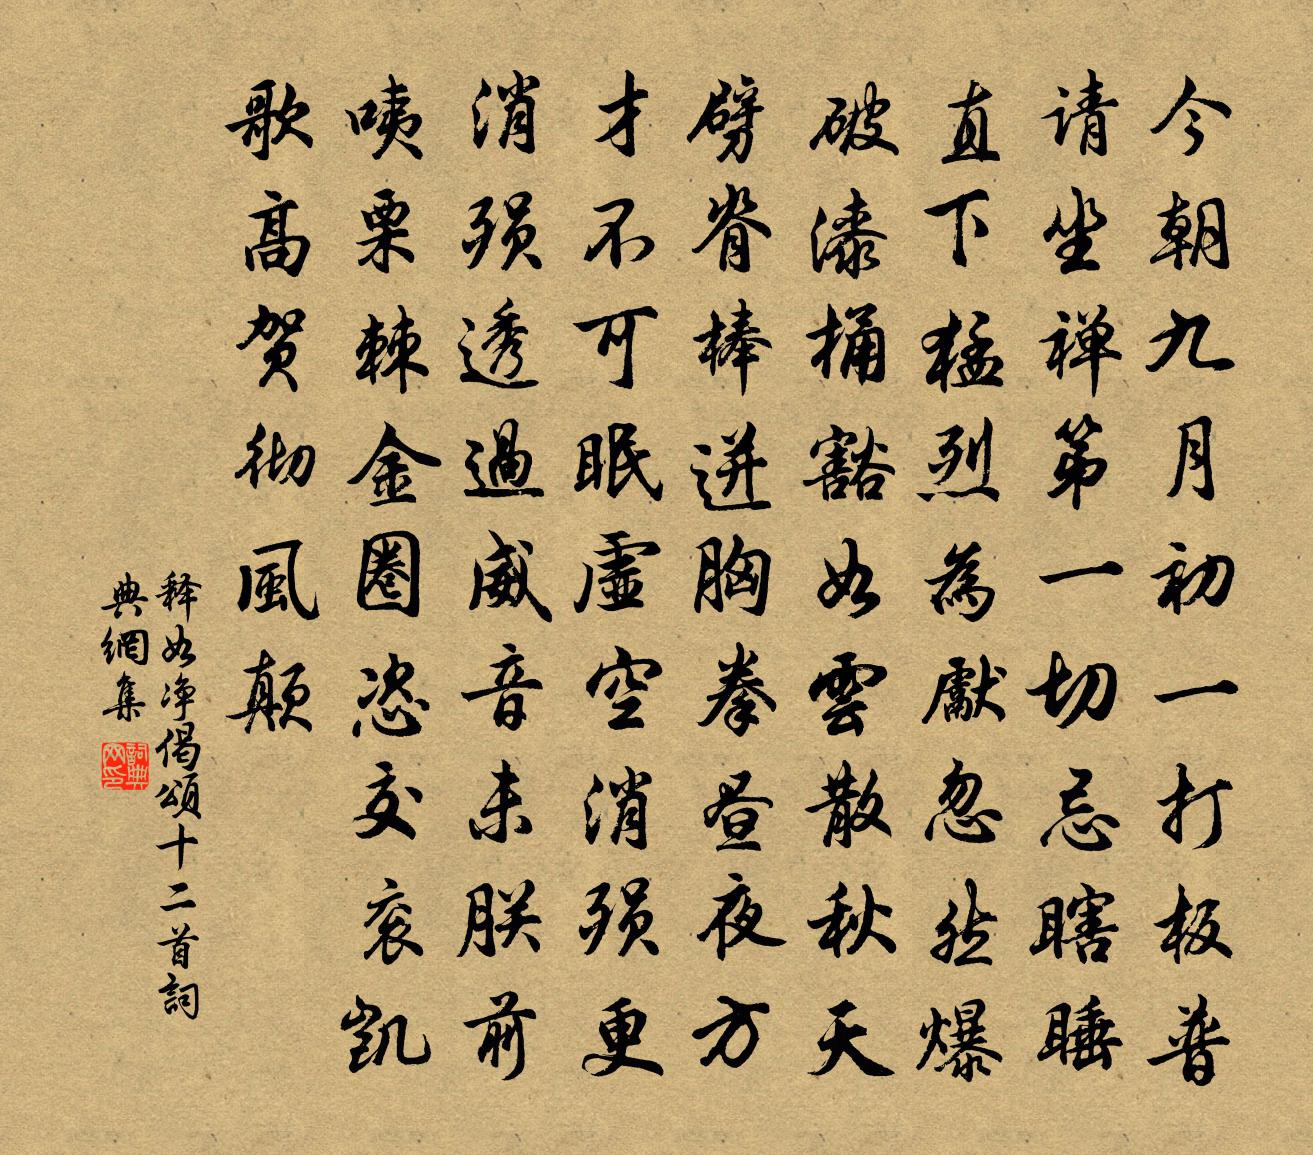 今朝九月初一打板普
请坐禅第一切忌瞎睡
直下猛烈為獻忽然爆
破漆桶豁如雲散秋天
劈脊棒迸胸拳昼夜方
才不可眠虚空消殒更
消殒透過威音未朕前
咦栗棘金圈恣交衮凯
歌高贺彻風颠
释如净偈頌十二首詞
典網集
詞典网印